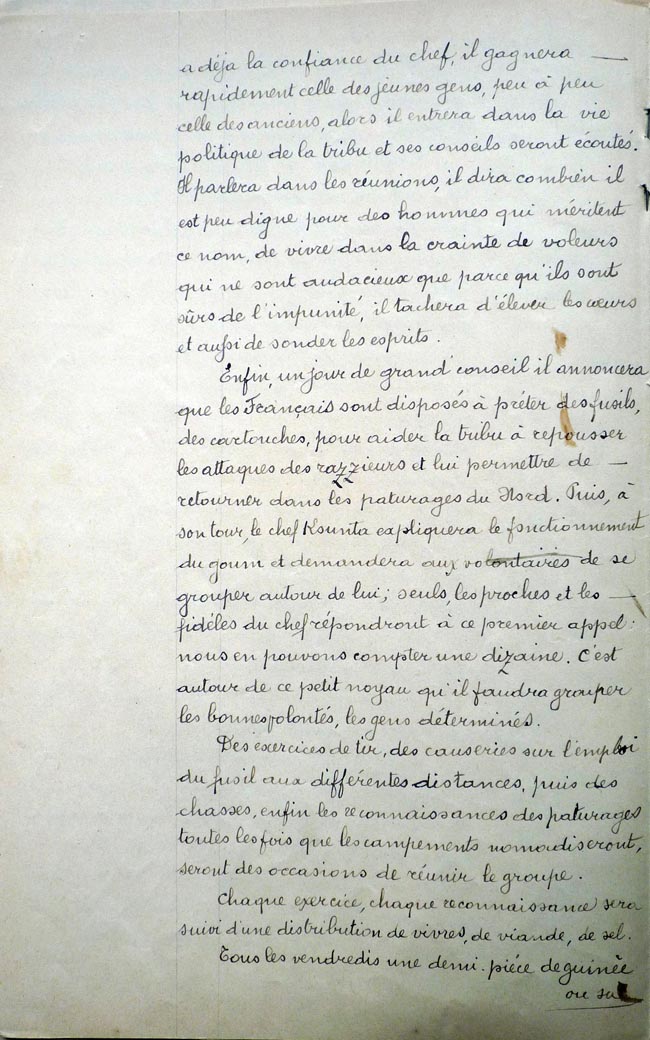 a déja la confiance du chef, il gagnera —
rapidement celle des jeunes gens, peu à peu
celle des anciens, alors il entrera dans la vie
politique de la tribu et ses conseils seront écoutés.
Il parlera dans les réunions, il dira combien il
est peu digne pour des hommes qui méritent
ce nom, de vivre dans la crainte de voleurs
qui ne sont audacieux que parce qu'ils sont
sûrs de l'impunité, il tachera d'élever les cœurs
et aussi de sonder les esprits.
Enfin, un jour de grand conseil il annoncera
que les Français sont disposés à préter des fusils,
des cartouches, pour aider la tribu à repousser
les attaques des razzieurs et lui permettre de —
retourner dans les paturages du Nord. Puis, à
son tour, le chef Kounta expliquera le fonctionnement
du goum et demandera aux volontaires de se
grouper autour de lui; seuls, les proches et les —
fidèles du chef répondront à ce premier appel:
nous en pouvons compter une dizaine. C'est
autour de ce petit noyau qu'il faudra grouper
les bonnes volontés, les gens déterminés.
Des exercices de tir, des causeries sur l'emploi
du fusil aux différentes distances, puis des
chasses, enfin les reconnaissances des paturages
toutes les fois que les campements nomadiseront,
seront des occasions de réunir le groupe.
Chaque exercice, chaque reconnaissance sera
suivi d'une distribution de vivres, de viande, de sel.
Tous les vendredis une demi-pièce de guinée
ou